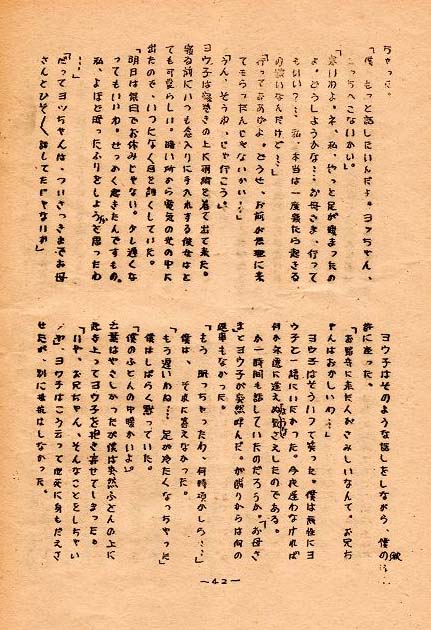 ちゃった。
「僕、もっと話したいんだよ。ヨッちゃん、
こっちへこないかい。」
よ。どうしようかな…お母さま、行って
もいい?…私、本当は一度寝たら起きる
の嫌いなんだけど…」
「行っておあげよ。どうせ、お前が無理に来
てもらったんじゃないかい…」
「うん、そうね、じゃ行こう。」
ヨウ子は寝巻きの上に羽織を着て出て来た。
寝る前にいつも念入りに手入れする彼女はと
ても可愛らしい。暗い所から電気の光の中に
出たので、いつとなく目を細くしていた。
「明日は祭日でお休みじゃない。少し遅くな
ってもいいわ。せっかく起きたんですもの。
私、よほど眠ったふりをしようかと思ったわ
…」
「だってヨッちゃんは、ついさっきまでお母
さんとひそひそ話してたじゃないか」
ヨウ子はそのような話をしながら、僕の
許に座った。
「お客さまに来た人がさみしいなんて。お兄ち
ゃんはおかしいわ…」
ヨウ子はそういって笑った。僕は無性にヨ
ウ子と一緒にいたかった。今夜逢わなければ
何か永遠に逢えぬ気さえしたのである。
か一時間も話していたのだろうか。「お母さ
ま」とヨウ子が突然呼んだ。が眠りからは何の
返事もなかった。
「もう 眠っちゃったわ、何時頃かしら…」
僕は、それに答えなかった。
「もう遅いわね…足が冷たくなっちゃった」
僕はしばらく黙っていた。
「僕のふとんの中暖かいよ」
言葉はやさしかったが僕は突然ふとんの上に
起き上ってヨウ子を抱き寄せてしまった。
「いや、お兄ちゃん、そんなことをしちゃい
や」ヨウ子はこう云って必死に身もだえさ
せたが、別に抵抗はしなかった。
—42—